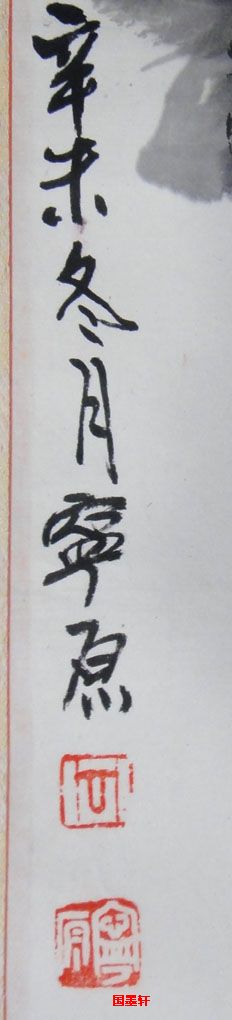 辛未冬月寧原
寧原
国墨轩